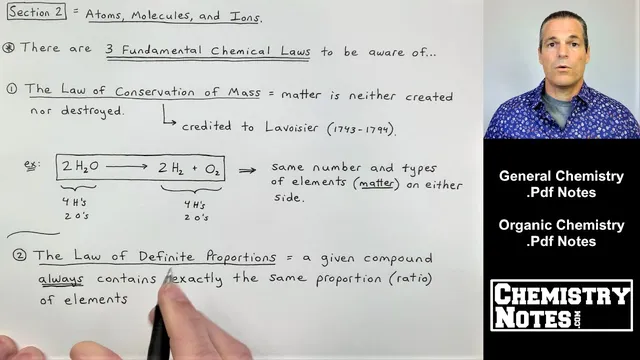 Section 2 = Atoms, Molecules, and Ions.
* There are 3 Fundamental Chemical Laws to be aware of...
① The Law of Conservation of Mass = matter is neither created
nor destroyed.
↳ credited to Lavoisier (1743-1794).
ex: 2 H₂O → 2 H₂ + O₂ ⇒ same number and types
of elements (matter) on either
side.
4 H's 4 H's
2 O's 2 O's
② The Law of Definite Proportions = a given compound
always contains exactly the same proportion (ratio)
of elements
General Chemistry
.Pdf Notes
Organic Chemistry
.Pdf Notes
CHEMISTRY
NOTES.COM